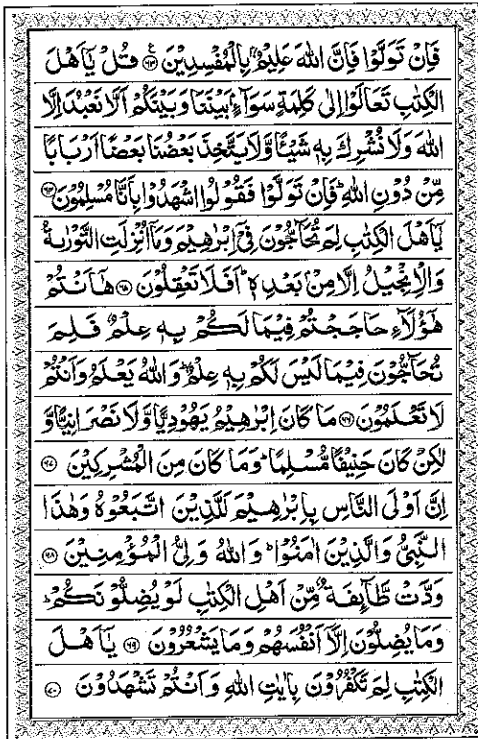 فَاِنْ تَوَلَّوْا فَاِنَّ اللّٰهَ عَلِيْمٌۢ بِالْمُفْسِدِيْنَ ﴿۶۳﴾ قُلْ يٰۤاَهْلَ
الْكِتٰبِ تَعَالَوْا اِلٰى كَلِمَةٍ سَوَآءٍۭ بَيْنَنَا وَبَيْنَكُمْ اَلَّا نَعْبُدَ اِلَّا
اللّٰهَ وَلَا نُشْرِكَ بِهٖ شَيْـًٔا وَّلَا يَتَّخِذَ بَعْضُنَا بَعْضًا اَرْبَابًا
مِّنْ دُوْنِ اللّٰهِ ؕ فَاِنْ تَوَلَّوْا فَقُوْلُوا اشْهَدُوْا بِاَنَّا مُسْلِمُوْنَ ﴿۶۴﴾
يٰۤاَهْلَ الْكِتٰبِ لِمَ تُحَآجُّوْنَ فِيْۤ اِبْرٰهِيْمَ وَمَاۤ اُنْزِلَتِ التَّوْرٰىةُ
وَالْاِنْجِيْلُ اِلَّا مِنْۢ بَعْدِهٖ ؕ اَفَلَا تَعْقِلُوْنَ ﴿۶۵﴾ هٰۤاَنْتُمْ
هٰٓؤُلَآءِ حَاجَجْتُمْ فِيْمَا لَكُمْ بِهٖ عِلْمٌ فَلِمَ
تُحَآجُّوْنَ فِيْمَا لَيْسَ لَكُمْ بِهٖ عِلْمٌ ؕ وَاللّٰهُ يَعْلَمُ وَاَنْتُمْ
لَا تَعْلَمُوْنَ ﴿۶۶﴾ مَا كَانَ اِبْرٰهِيْمُ يَهُوْدِيًّا وَّلَا نَصْرَانِيًّا وَّ
لٰكِنْ كَانَ حَنِيْفًا مُّسْلِمًا ؕ وَمَا كَانَ مِنَ الْمُشْرِكِيْنَ ﴿۶۷﴾
اِنَّ اَوْلَى النَّاسِ بِاِبْرٰهِيْمَ لَلَّذِيْنَ اتَّبَعُوْهُ وَهٰذَا
النَّبِيُّ وَالَّذِيْنَ اٰمَنُوْا ؕ وَاللّٰهُ وَلِيُّ الْمُؤْمِنِيْنَ ﴿۶۸﴾
وَدَّتْ طَّآىِٕفَةٌ مِّنْ اَهْلِ الْكِتٰبِ لَوْ يُضِلُّوْنَكُمْ ؕ
وَمَا يُضِلُّوْنَ اِلَّاۤ اَنْفُسَهُمْ وَمَا يَشْعُرُوْنَ ﴿۶۹﴾ يٰۤاَهْلَ
الْكِتٰبِ لِمَ تَكْفُرُوْنَ بِاٰيٰتِ اللّٰهِ وَاَنْتُمْ تَشْهَدُوْنَ ﴿۷۰﴾